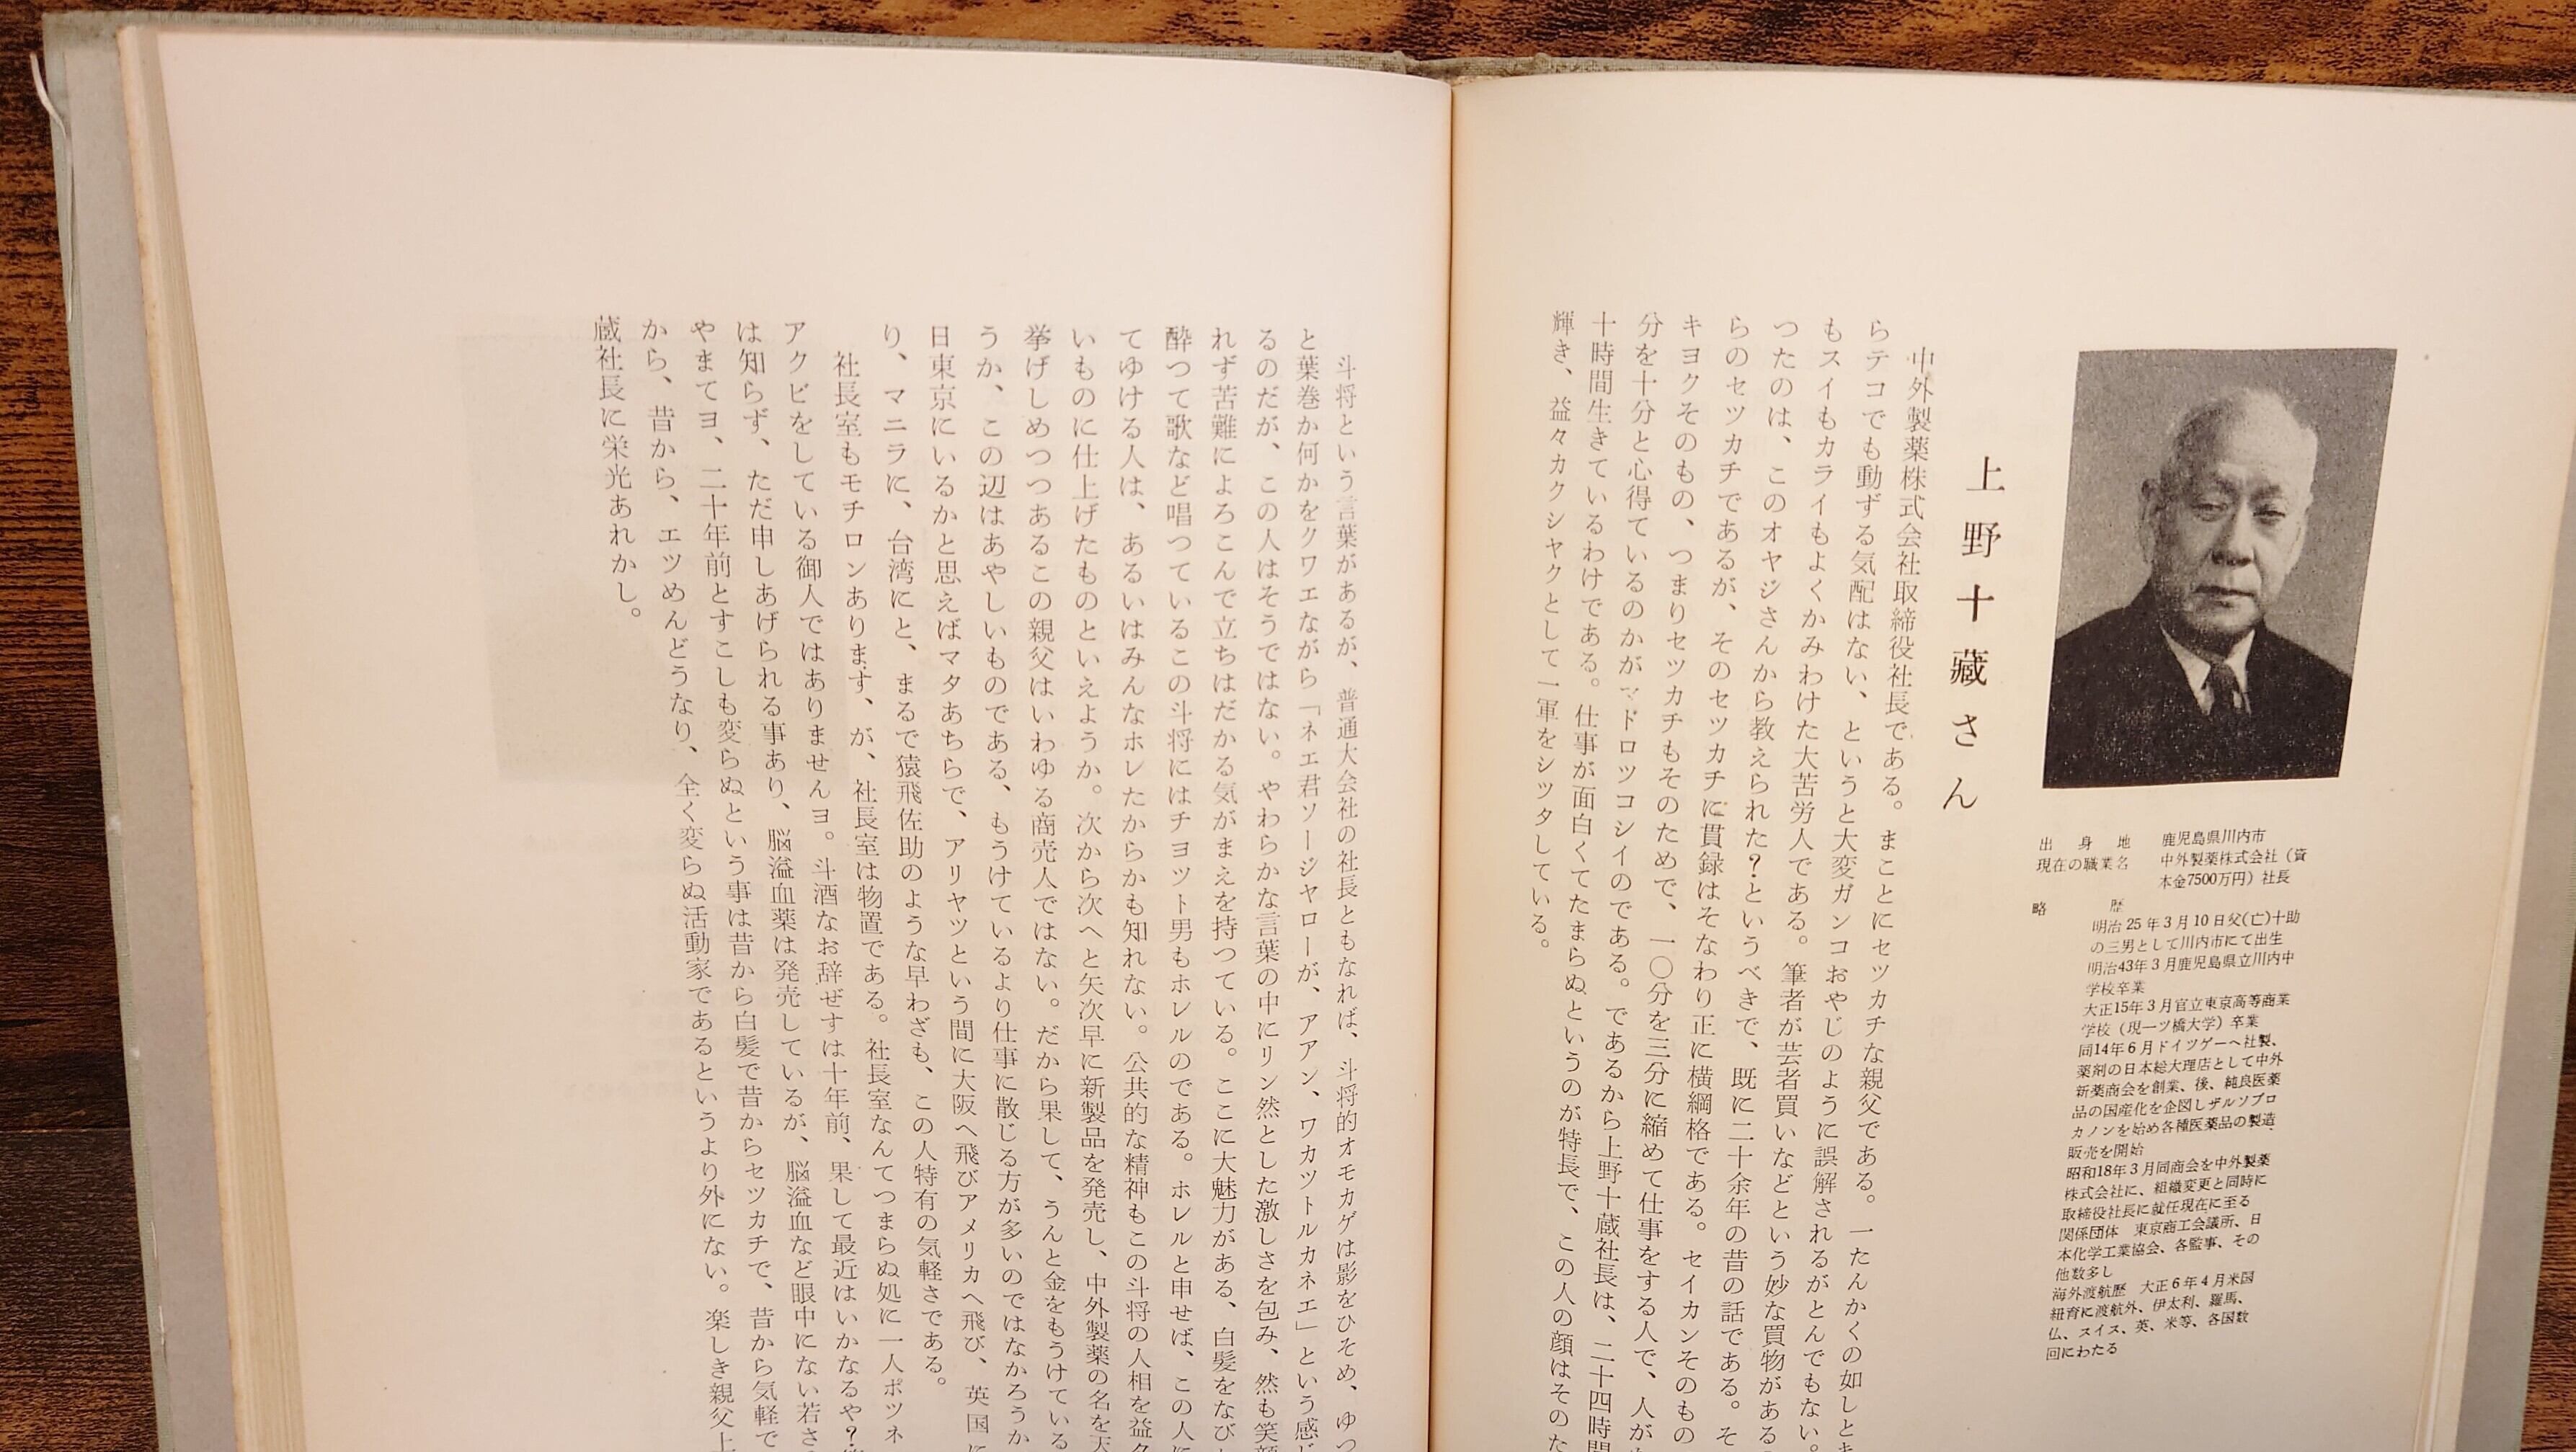 上野十蔵さん
出身地　鹿児島県川内市
現在の職業名　中外製薬株式会社（資
本金7500万円）社長
略歴
明治25年3月10日父(亡)十助
の三男として川内市にて出生
明治43年3月鹿児島県立川内中
学校卒業
大正15年3月官立東京高等商業
学校（現一ツ橋大学）卒業
同14年6月ドイツゲーへ社製、
薬剤の日本総代理店として中外
新薬商会を創業、後、純良医薬
品の国産化を企図しザルソブロ
カノンを始め各種医薬品の製造
販売を開始
昭和18年3月同商会を中外製薬
株式会社に、組織変更と同時に
取締役社長に就任現在に至る
関係団体　東京商工会議所、日
本化学工業協会、各監事、その
他数多し
海外渡航歴　大正6年4月米国
紐育に渡航外、伊太利、羅馬、
仏、スイス、英、米等、各国数
回にわたる
中外製薬株式会社取締役社長である。まことにセツカチな親父である。一たんかくの如しと
らテコでも動ずる気配はない、というと大変ガンコおやじのように誤解されるがとんでもない。
もスイもカライもよくかみわけた大苦労人である。筆者が芸者買いなどという妙な買物がある
つたのは、このオヤジさんから教えられた？というべきで、既に二十余年の昔の話である。そ
らのセツカチであるが、そのセツカチに貫録はそなわり正に横綱格である。セイカンそのもの
キヨクそのもの、つまりセツカチもそのためで、一〇分を三分に縮めて仕事をする人で、人が
分を十分と心得ているのかがマドロツコシイのである。であるから上野十蔵社長は、二十四時間
十時間生きているわけである。仕事が面白くてたまらぬというのが特長で、この人の顔はそのた
輝き、益々カクシヤクとして一軍をシツタしている。
斗将という言葉があるが、普通大会社の社長ともなれば、斗将的オモカゲは影をひそめ、ゆつ
と葉巻か何かをクワエながら「ネエ君ソージヤローが、アアン、ワカツトルカネエ」という感じ
るのだが、この人はそうではない。やわらかな言葉の中にリン然とした激しさを包み、然も笑顔
れず苦難によろこんで立ちはだかる気がまえを持つている。ここに大魅力がある、白髪をなび
酔つて歌など唱つているこの斗将にはチヨツト男もホレルのである。ホレルと申せば、この人に
てゆける人は、あるいはみんなホレたからかも知れない。公共的な精神もこの斗将の人相を益々
いものに仕上げたものといえようか。次から次へと矢次早に新製品を発売し、中外製薬の名を天
挙げしめつつあるこの親父はいわゆる商売人ではない。だから果して、うんと金をもうけている
うか、この辺はあやしいものである、もうけているより仕事に散じる方が多いのではなかろうか
日東京にいるかと思えばマタあちらで、アリヤツという間に大阪へ飛びアメリカへ飛び、英国に
り、マニラに、台湾にと、まるで猿飛佐助のような早わざも、この人特有の気軽さである。
社長室もモチロンあります、が、社長室は物置である。社長室なんてつまらぬ処に一人ポツネ
アクビをしている御人ではありませんヨ。斗酒なお辞ぜすは十年前、果して最近はいかなるや？
は知らず、ただ申しあげられる事あり、脳溢血薬は発売しているが、脳溢血など眼中にない若さ
やまてヨ、二十年前とすこしも変らぬという事は昔から白髪で昔からセツカチで、昔から気軽で
から、昔から、エツめんどうなり、全く変らぬ活動家であるというより外にない。楽しき親父上
蔵社長に栄光あれかし。